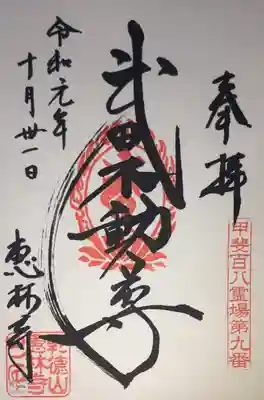 奉拝
甲斐百八霊場第九番
武田不動尊
令和元年
十月卅一日
恵林寺
乾徳山
恵林寺